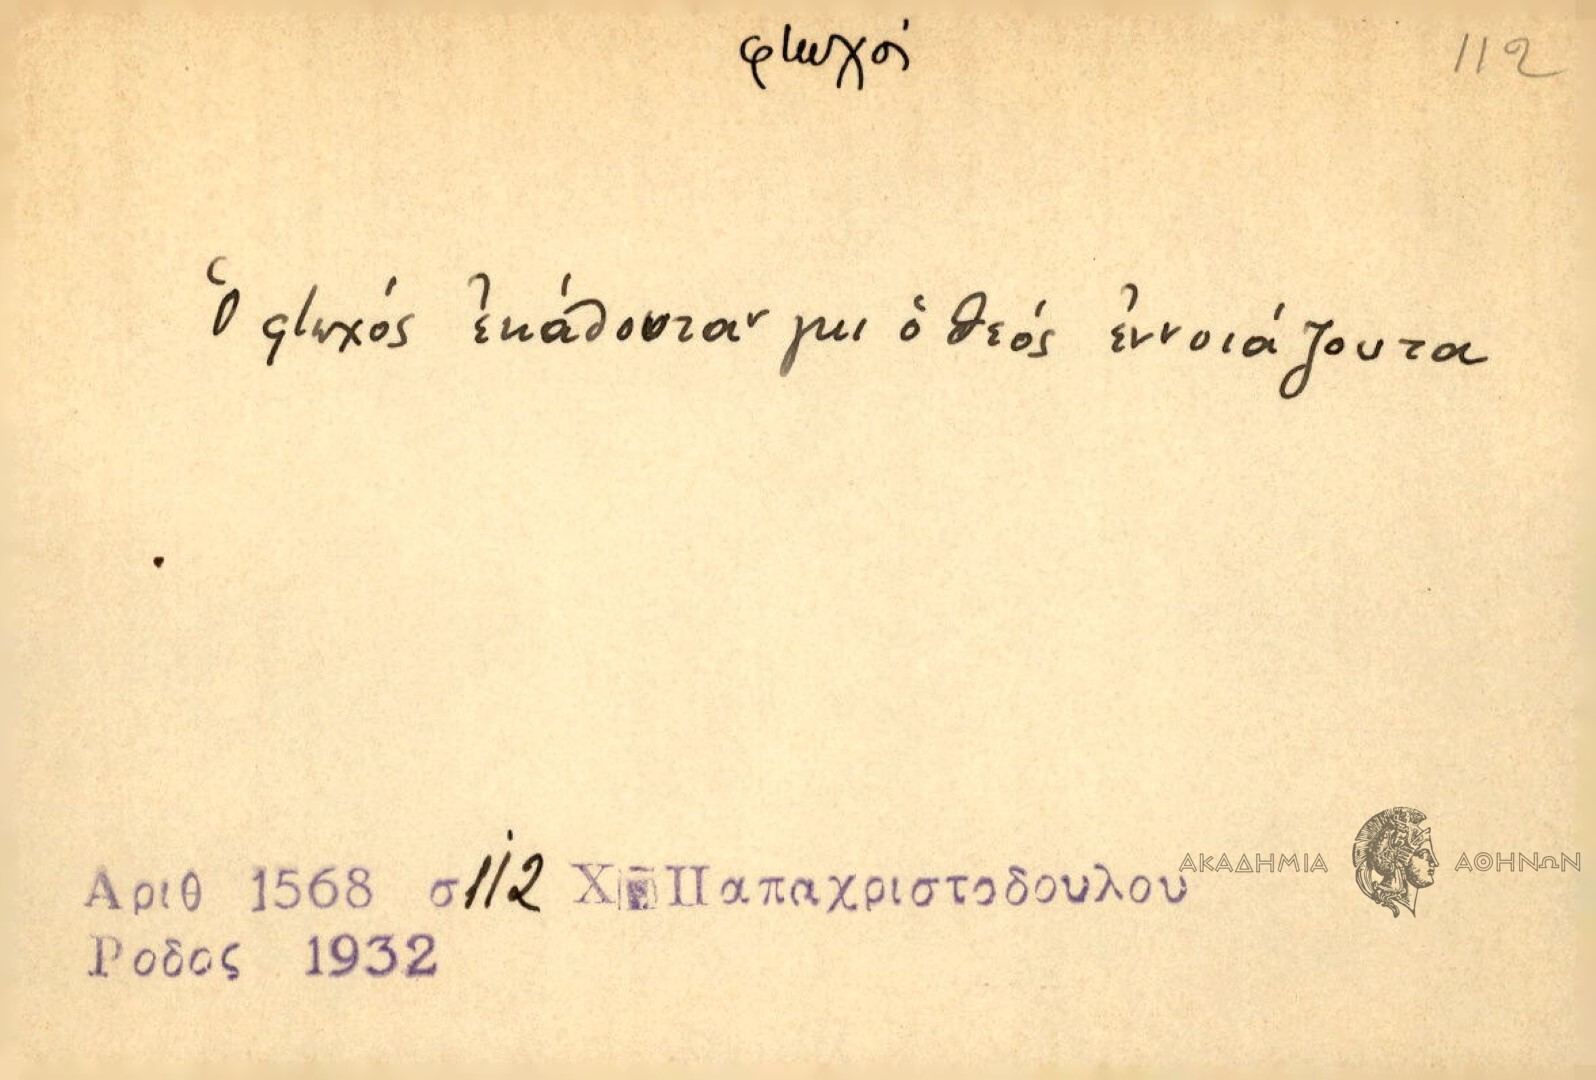 φτωχοί
112
Ὁ φτωχός ἐκάθουταν γκι ὁ θεός ἐννοιάζουτα
ΑΚΑΔΗΜΙΑ ΑΘΗΝΩΝ
Αριθ 1568 σ112 Χ Παπαχριστοδουλου
Ροδος 1932